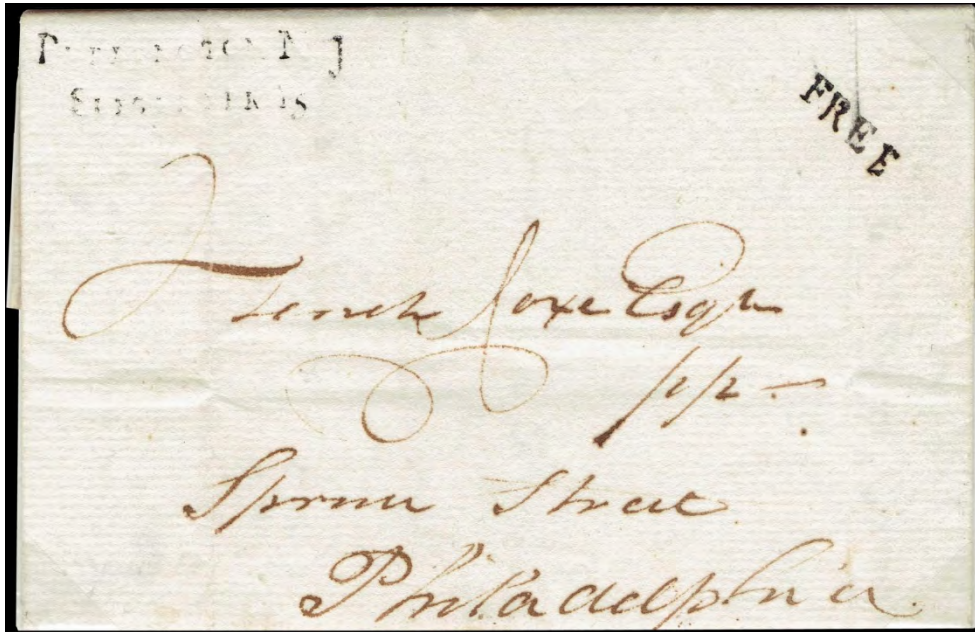 FREE
Tench Coxe Esqr
pp -
Spruce Street
Philadelphia